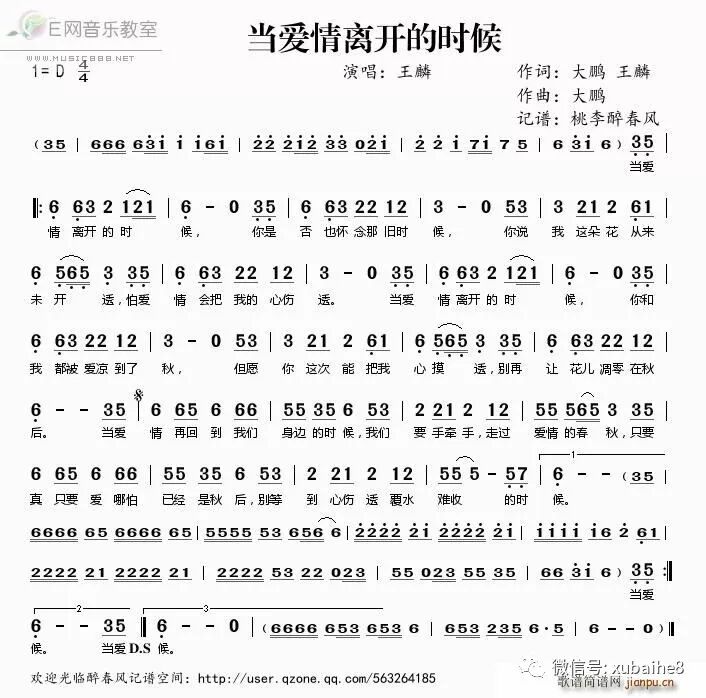 E网音乐教室
WWW.MUSIC888.NET
当爱情离开的时候
1=D 4/4 演唱：王麟 作词：大鹏 王麟
作曲：大鹏
记谱：桃李醉春风
(35 | 666 631 i i6i | 22 212 33 2023 | 22i 71 75 | 6 3i 6) 35
当爱
6 63 2 121 | 6 - 0 35 | 6 63 22 12 | 3 - 0 53 | 3 22 2 61
情 离开 的 时 候， 你是 否 也怀 念那 旧时 候， 你说 我 这朵 花 从来
6 565 3 35 | 6 63 22 12 | 3 - 0 35 | 6 63 2 121 | 6 - 0 35
未 开 透，怕爱 情 会把 我的 心伤 透。 当爱 情 离开 的 时 候， 你和
6 63 22 12 | 3 - 0 53 | 3 22 2 61 | 6 565 3 35 | 6 63 22 12
我 都被 爱凉 到了 秋， 但愿 你 这次 能 把我 心 摸 透，别再 让 花儿 凋零 在秋
6 - - 35 | 6 65 6 66 | 55 35 6 53 | 2 21 2 35 | 55 565 3 35
后。 当爱 情 再回 到 我们 身边 的时 候，我们 要 手牵 手，走过 爱情 的春 秋，只要
6 65 6 66 | 55 35 6 53 | 2 21 2 12 | 55 5 - 57 | 6 - - (35
真 只要 爱 哪怕 已经 是秋 后，别等 到 心伤 透 覆水 难收 的时 候。
6666 65 6666 65 | 5555 53 656 6 | 2222 2i 2222 2i | iiii i6 2 61
2222 21 2222 21 | 2222 53 2 023 | 55 023 55 35 | 66 3i 6) 35
当爱
6 - - 35 | 6 - - 0 | (6666 653 653 653 | 2235 2356 6· 5 | 6 - - 0)
候。 当爱 D.S 候。
欢迎光临醉春风记谱空间：http://user.qzone.qq.com/563264185
微信号: xubaihe8
歌谱简谱网
jianpu.cn